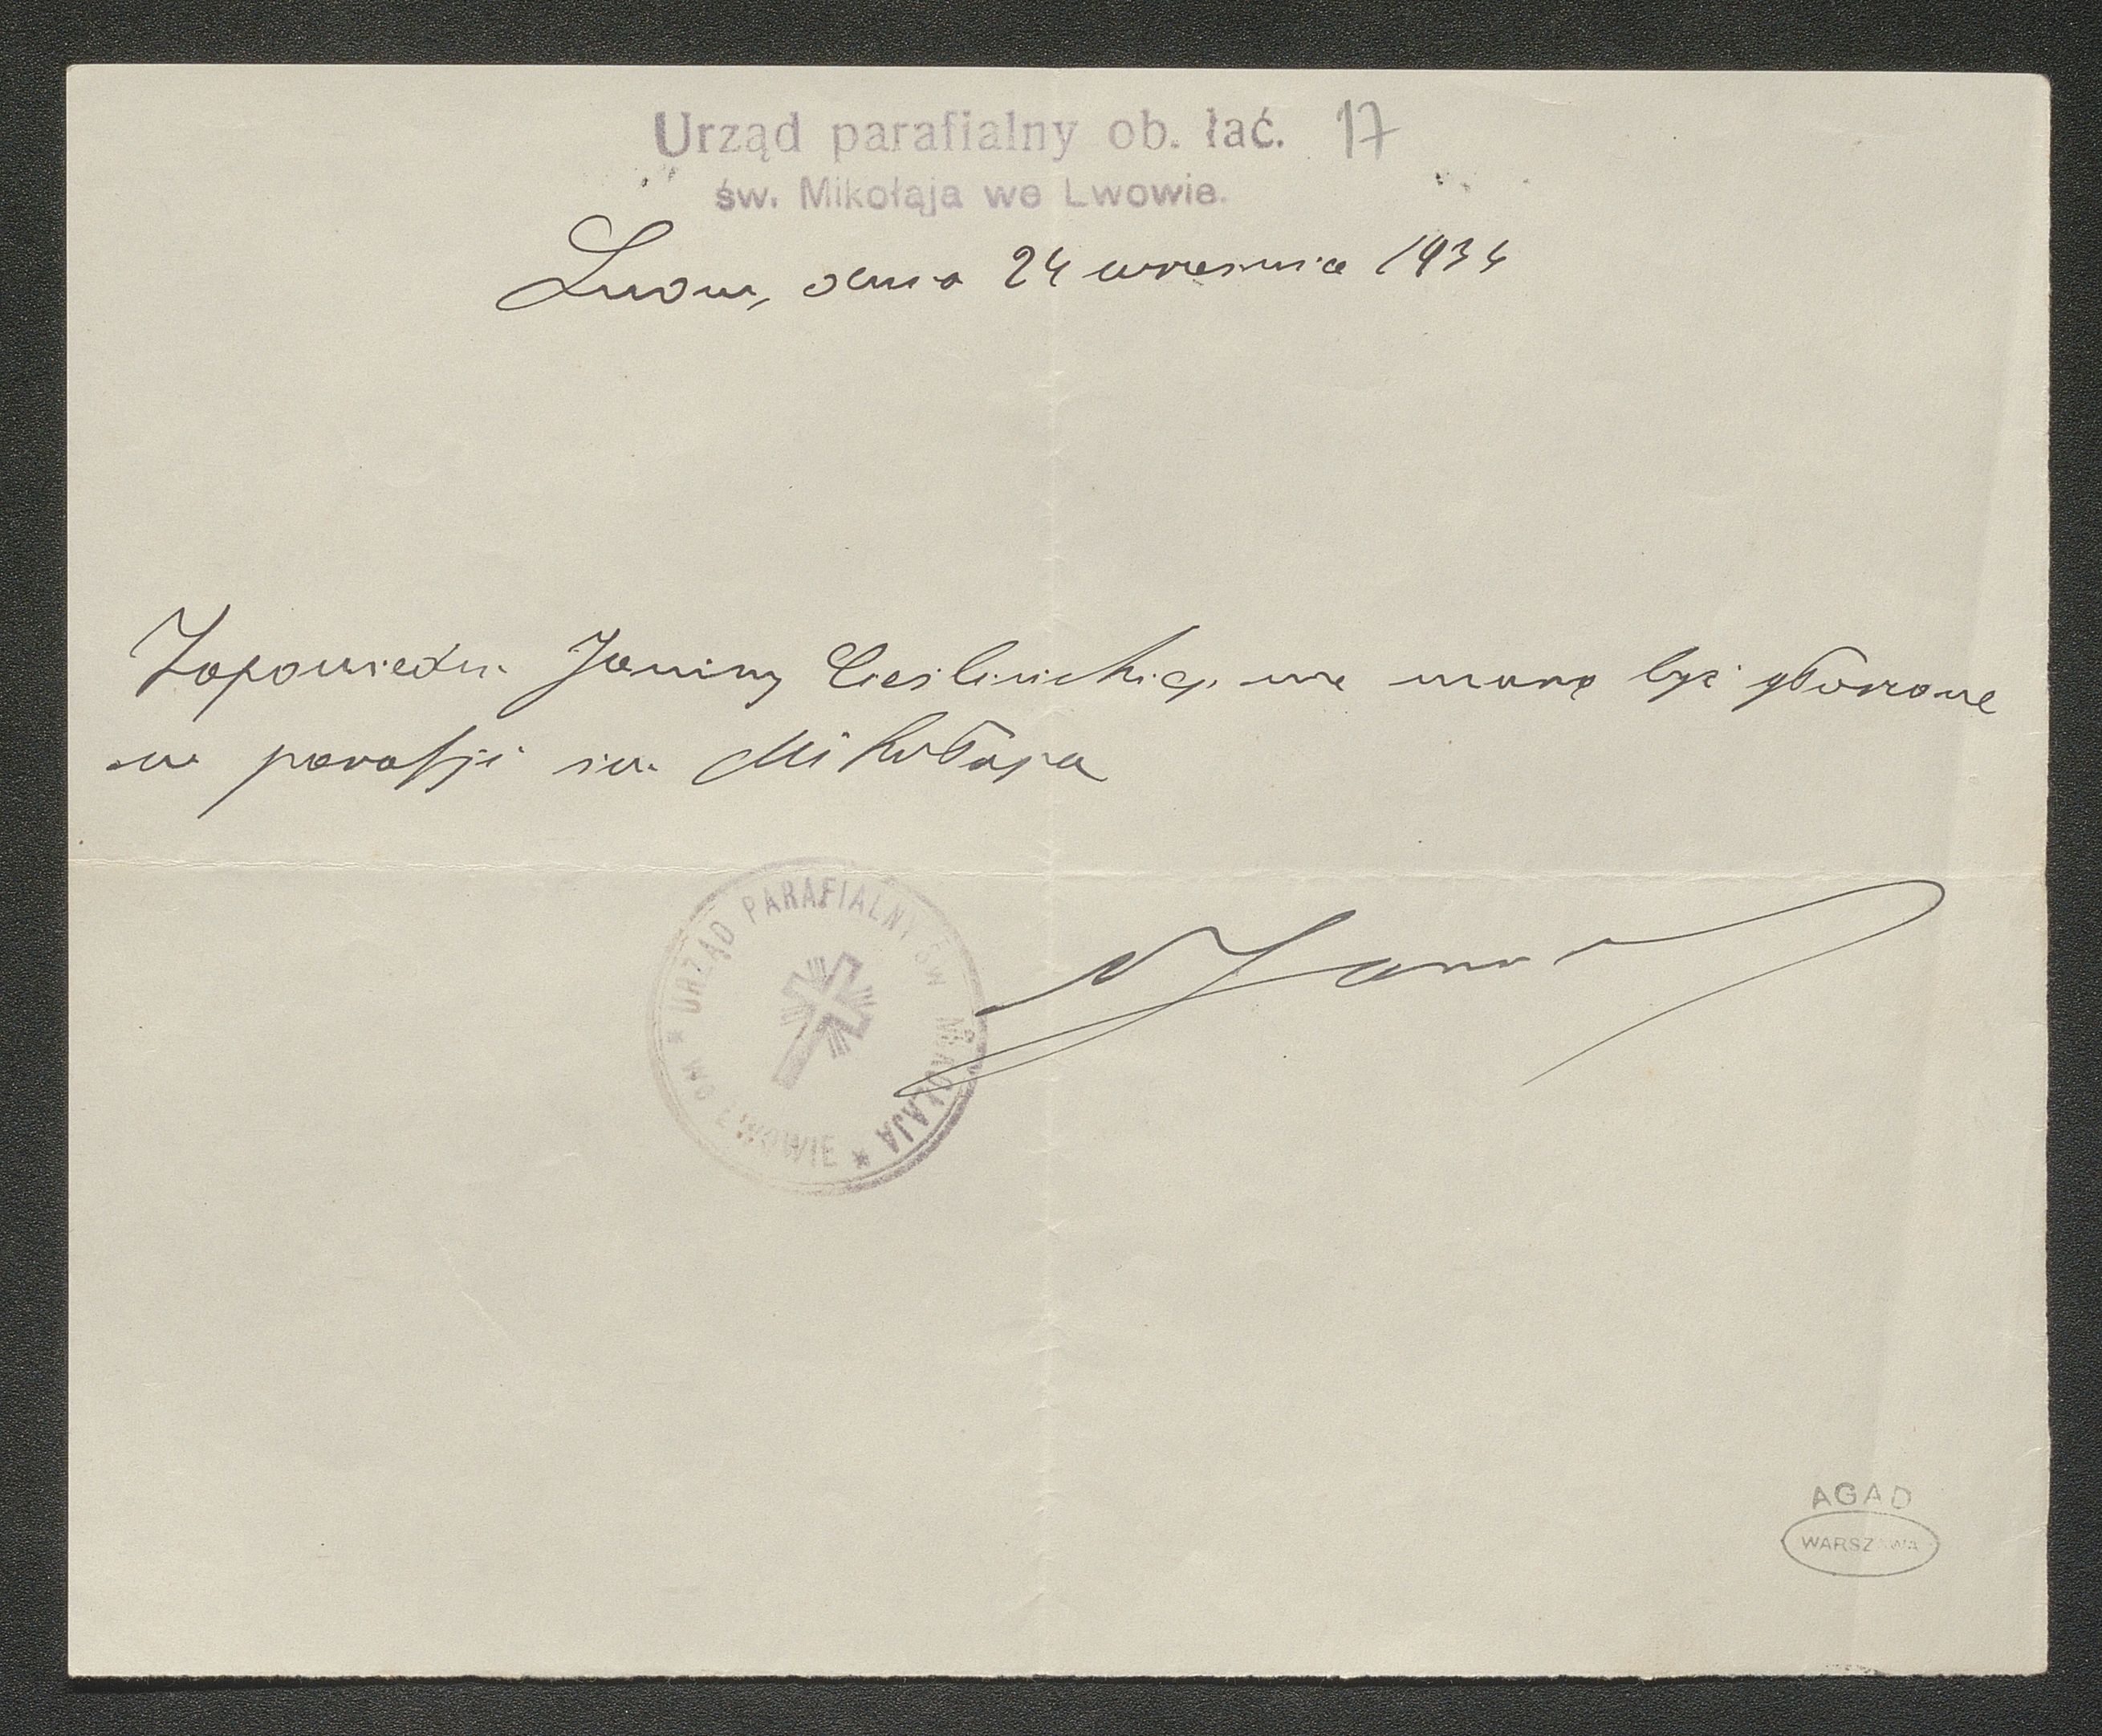 Urząd parafialny ob. łać. 17
św. Mikołaja we Lwowie.
Lwów, dnia 24 września 1934
Zapowiedzi Janiny Cieślińskiej nie mają być głoszone
w parafji św. Mikołaja
URZĄD PARAFIALNY ŚW. MIKOŁAJA * WE LWOWIE *
AGAD
WARSZAWA